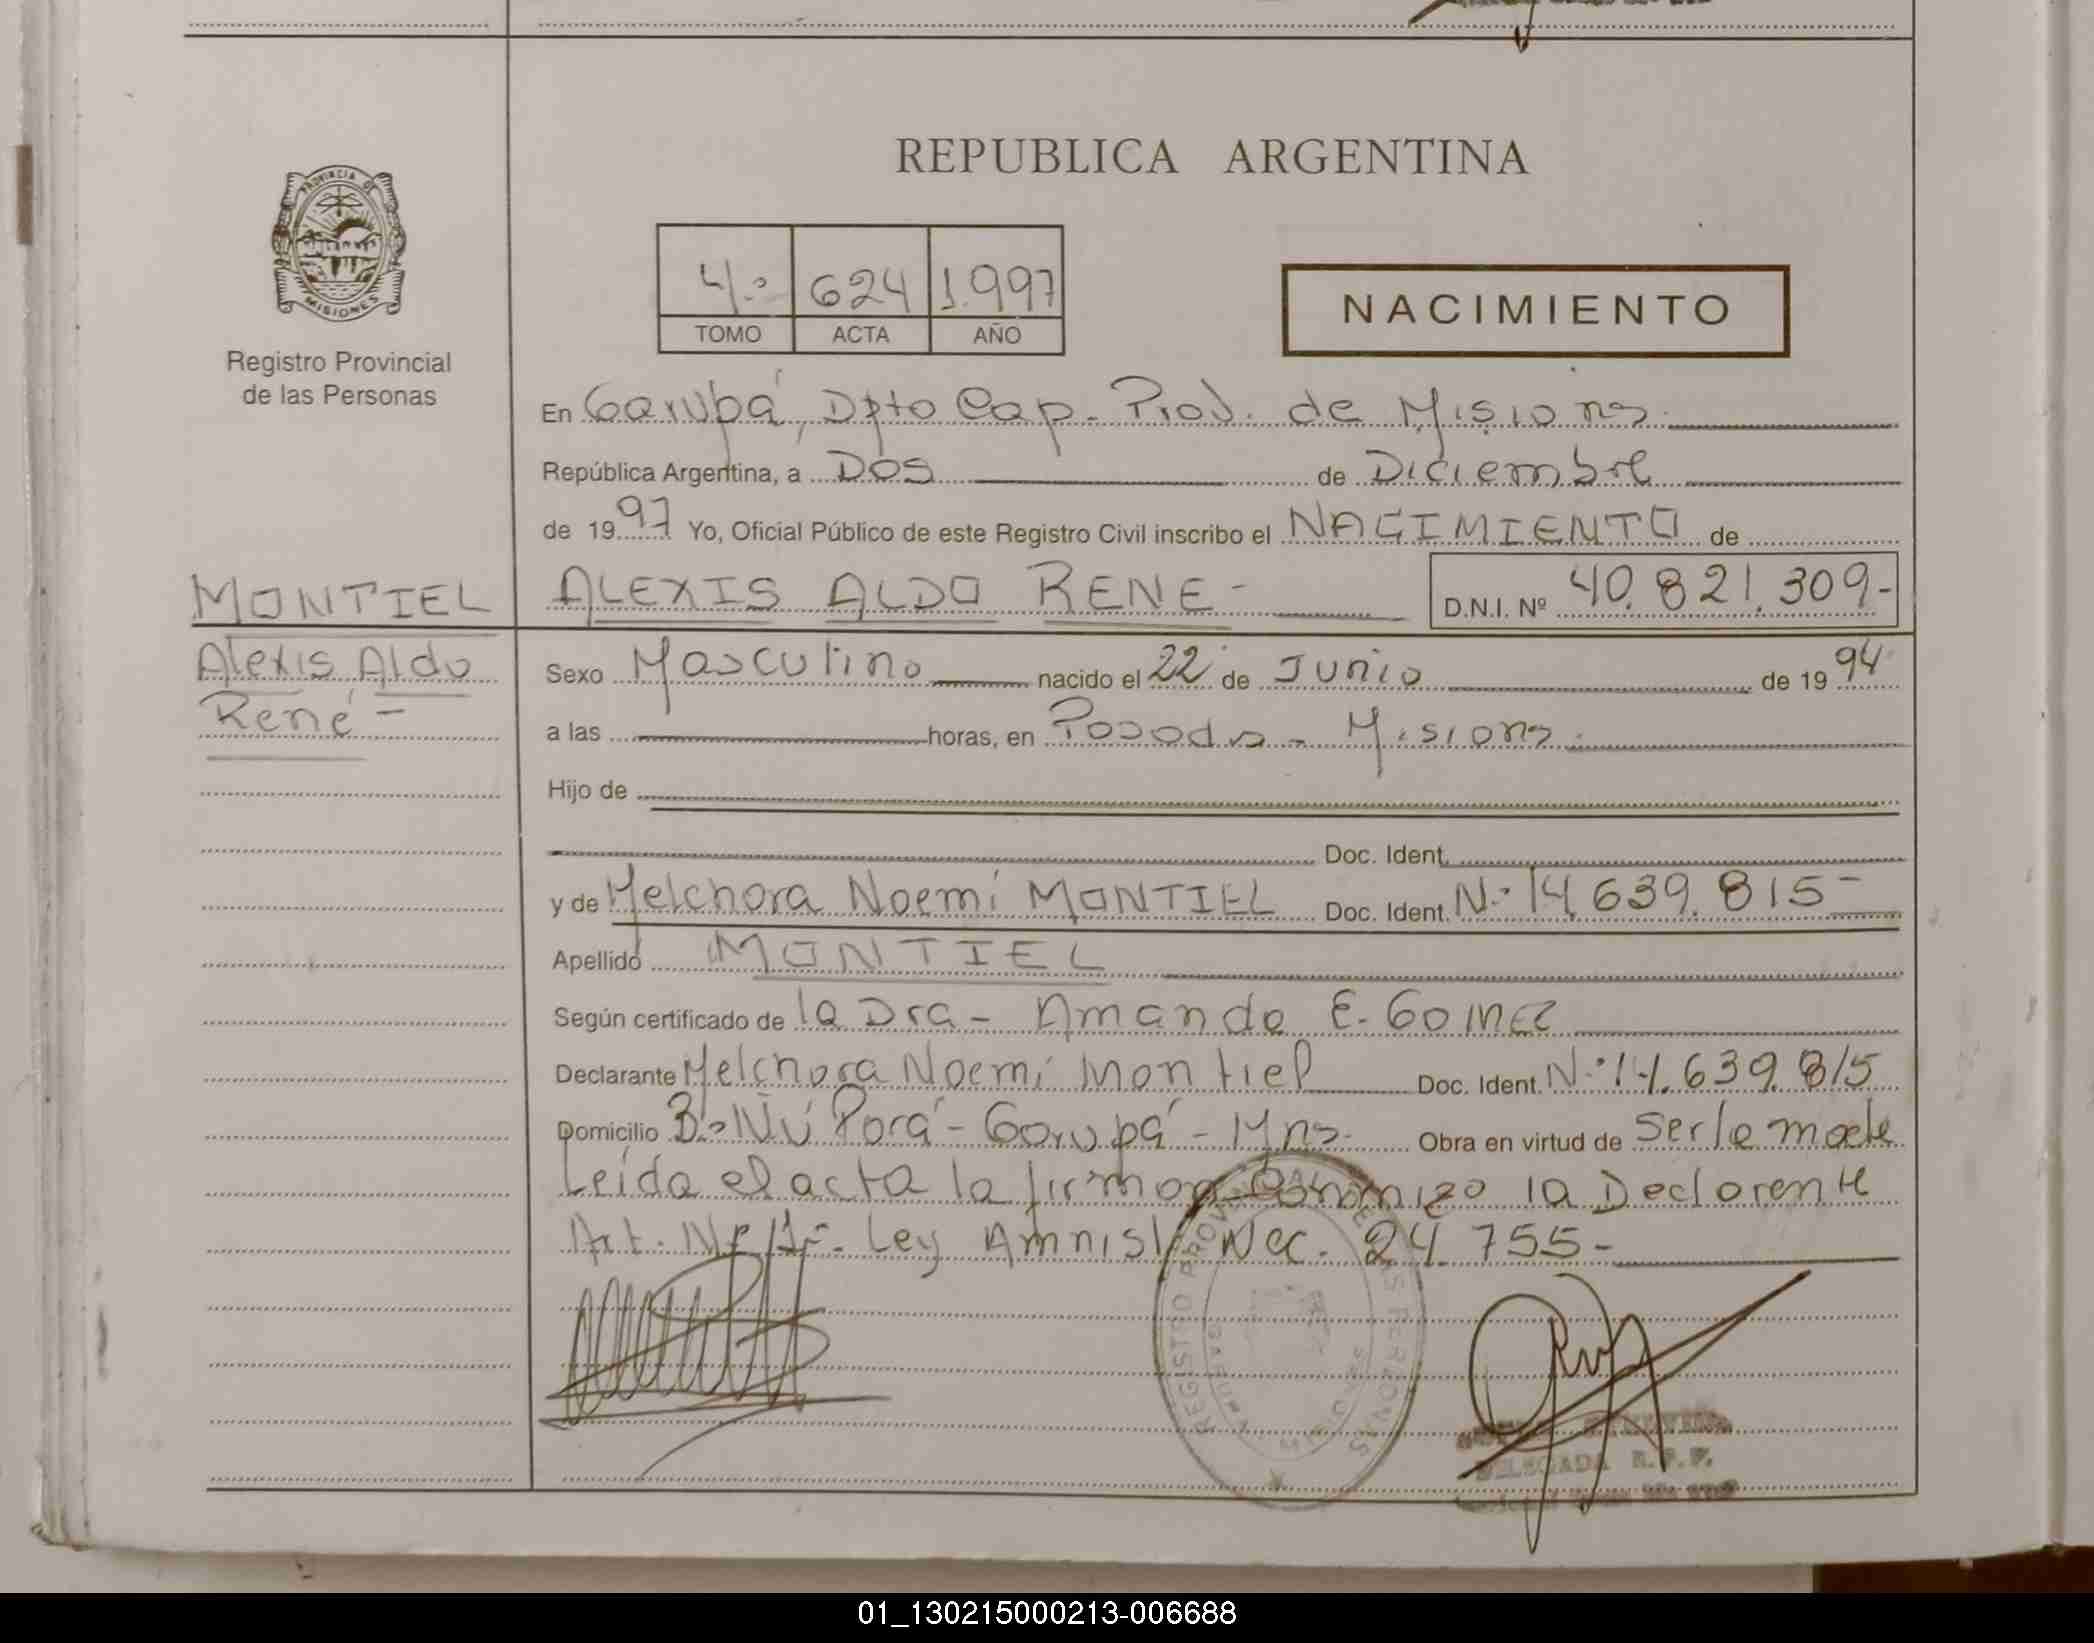 PROVINCIA DE
MISIONES
Registro Provincial
de las Personas
REPUBLICA ARGENTINA
4º 624 1.997
TOMO ACTA AÑO
NACIMIENTO
En Garupá, Dpto Cap. Prov. de Misiones
República Argentina, a Dos de Diciembre
de 1997 Yo, Oficial Público de este Registro Civil inscribo el NACIMIENTO de
MONTIEL ALEXIS ALDO RENE - D.N.I. Nº 40.821.309-
Alexis Aldo
René -
Sexo Masculino nacido el 22 de Junio de 1994
a las horas, en Posadas - Misiones.
Hijo de
Doc. Ident.
y de Melchora Noemí MONTIEL Doc. Ident. Nº 14.639.815-
Apellido MONTIEL
Según certificado de la Dra - Amanda E. Gomez
Declarante Melchora Noemí Montiel Doc. Ident. Nº 14.639.815
Domicilio Bº Ñú Porá - Garupá - Mns. Obra en virtud de ser la madre
Leída el acta la firman conmigo la Declarante
Art. Ley Amnist Nac. 24.755-
REGISTRO PROVINCIAL DE LAS PERSONAS
GARUPA
MISIONES
DELEGADA R.P.P.
01_130215000213-006688